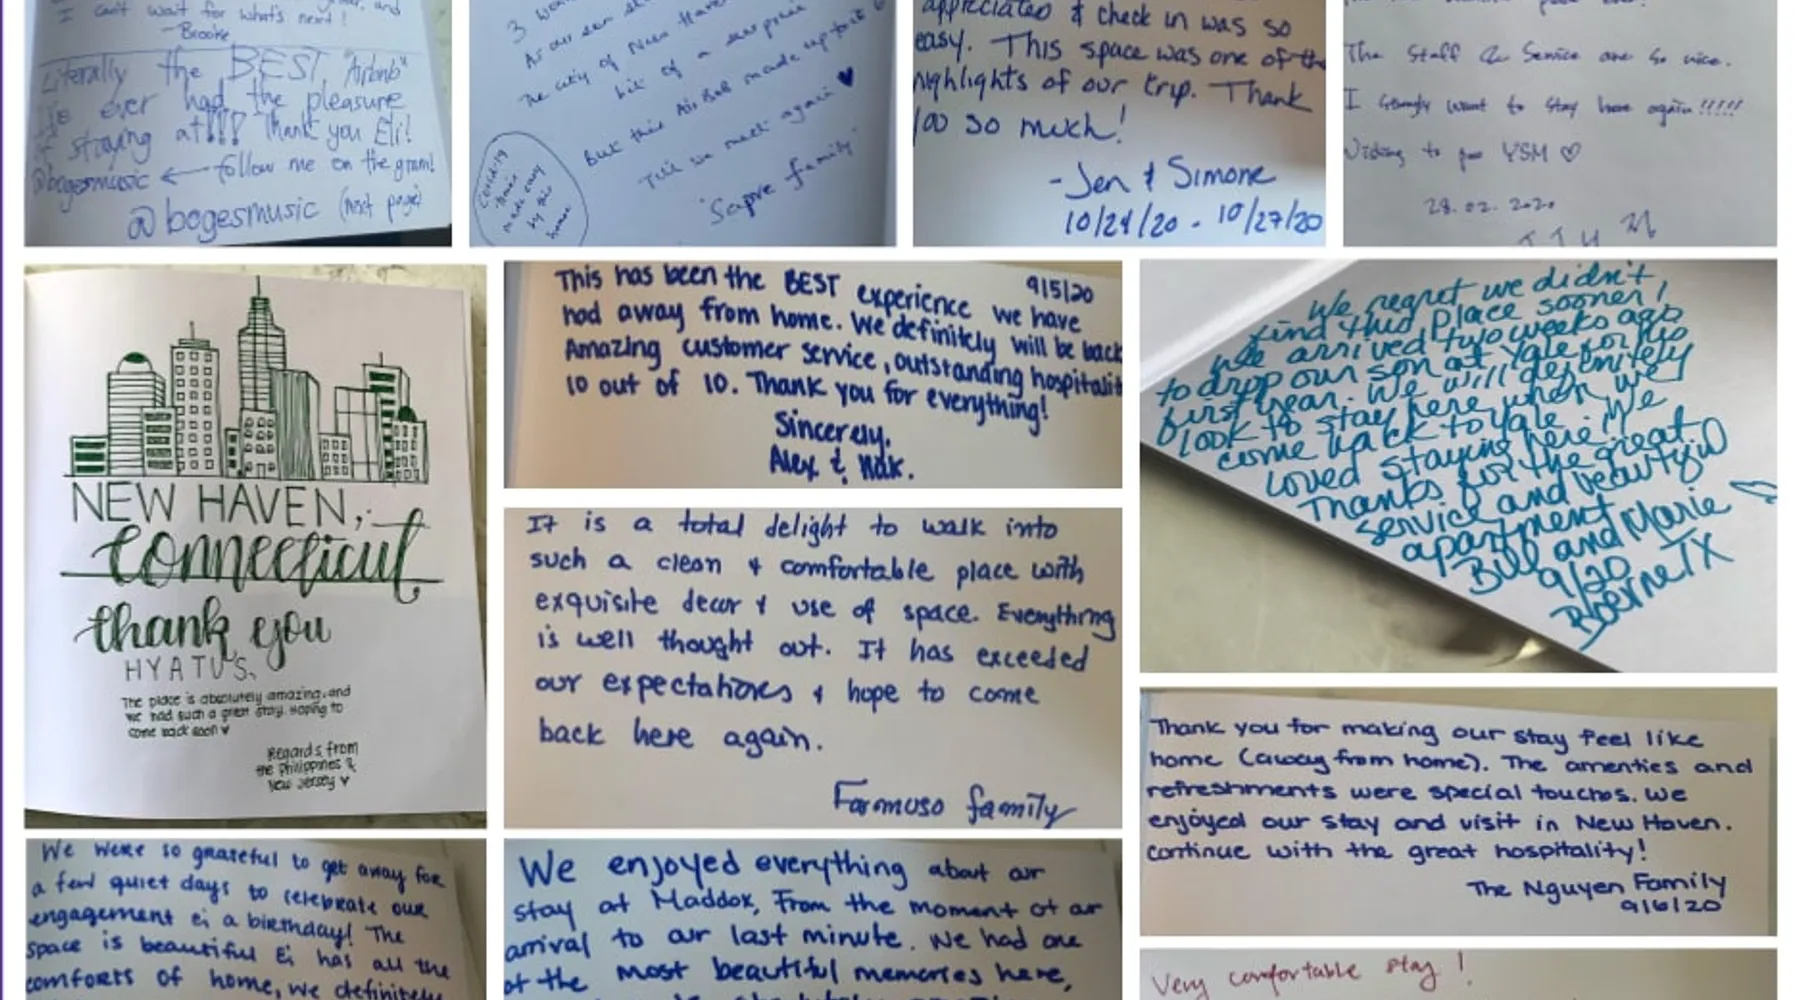 I can't wait for what's next!
- Brooke
Literally the BEST "Airbnb"
I've ever had the pleasure
of staying at!!! Thank you Eli!
@bogesmusic ← follow me on the gram!
@bogesmusic (next page)
3
As our
The city of New Haven
bit of a surprise
But this AirBnB made up for it
Till we meet again ♥
Sapre family
Covid-19
made easy
by this
home
appreciated & check in was so
easy. This space was one of the
highlights of our trip. Thank
you so much!
- Jen & Simone
10/24/20 - 10/27/20
The Staff & Service are so nice.
I want to stay here again!!!!!
YSM ♡
28.02.2020
NEW HAVEN,
Connecticut
thank you
HYATUS.
The place is absolutely amazing, and
we had such a great stay. Hoping to
come back soon ♥
Regards from
the Philippines &
New Jersey ♥
This has been the BEST experience we have 9/5/20
had away from home. We definitely will be back
Amazing customer service, outstanding hospitalit
10 out of 10. Thank you for everything!
Sincerely,
Alex & Nak.
It is a total delight to walk into
such a clean & comfortable place with
exquisite decor & use of space. Everything
is well thought out. It has exceeded
our expectations & hope to come
back here again.
Formuso family
We regret we didn't
find this place sooner!
We arrived two weeks ago
to drop our son at Yale for his
first year. We will definitely
look to stay here when we
come back to Yale! We
loved staying here!
Thanks for the great
service and beautiful
apartment
Bill and Marie
9/20
Boerne TX
Thank you for making our stay feel like
home (away from home). The amenties and
refreshments were special touches. We
enjoyed our stay and visit in New Haven.
continue with the great hospitality!
The Nguyen Family
9/6/20
We were so grateful to get away for
a few quiet days to celebrate our
engagement & a birthday! The
space is beautiful & has all the
comforts of home, we definitely
We enjoyed everything about our
stay at Maddox, From the moment of our
arrival to our last minute. We had one
of the most beautiful memories here,
Very comfortable stay!